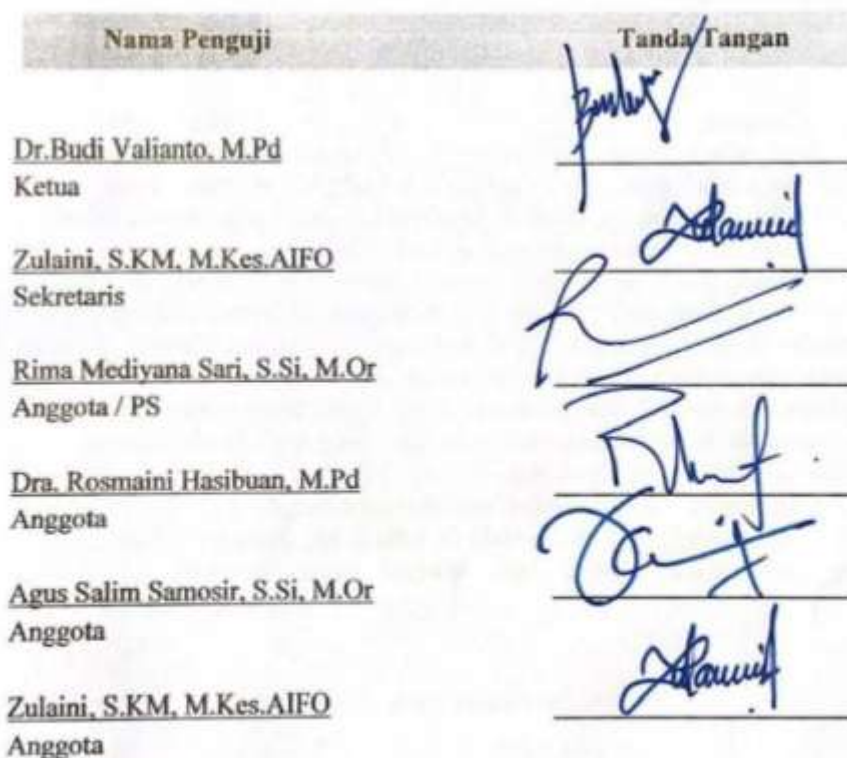 Nama Penguji Tanda Tangan
Dr.Budi Valianto, M.Pd
Ketua
Zulaini, S.KM, M.Kes.AIFO
Sekretaris
Rima Mediyana Sari, S.Si, M.Or
Anggota / PS
Dra. Rosmaini Hasibuan, M.Pd
Anggota
Agus Salim Samosir, S.Si, M.Or
Anggota
Zulaini, S.KM, M.Kes.AIFO
Anggota